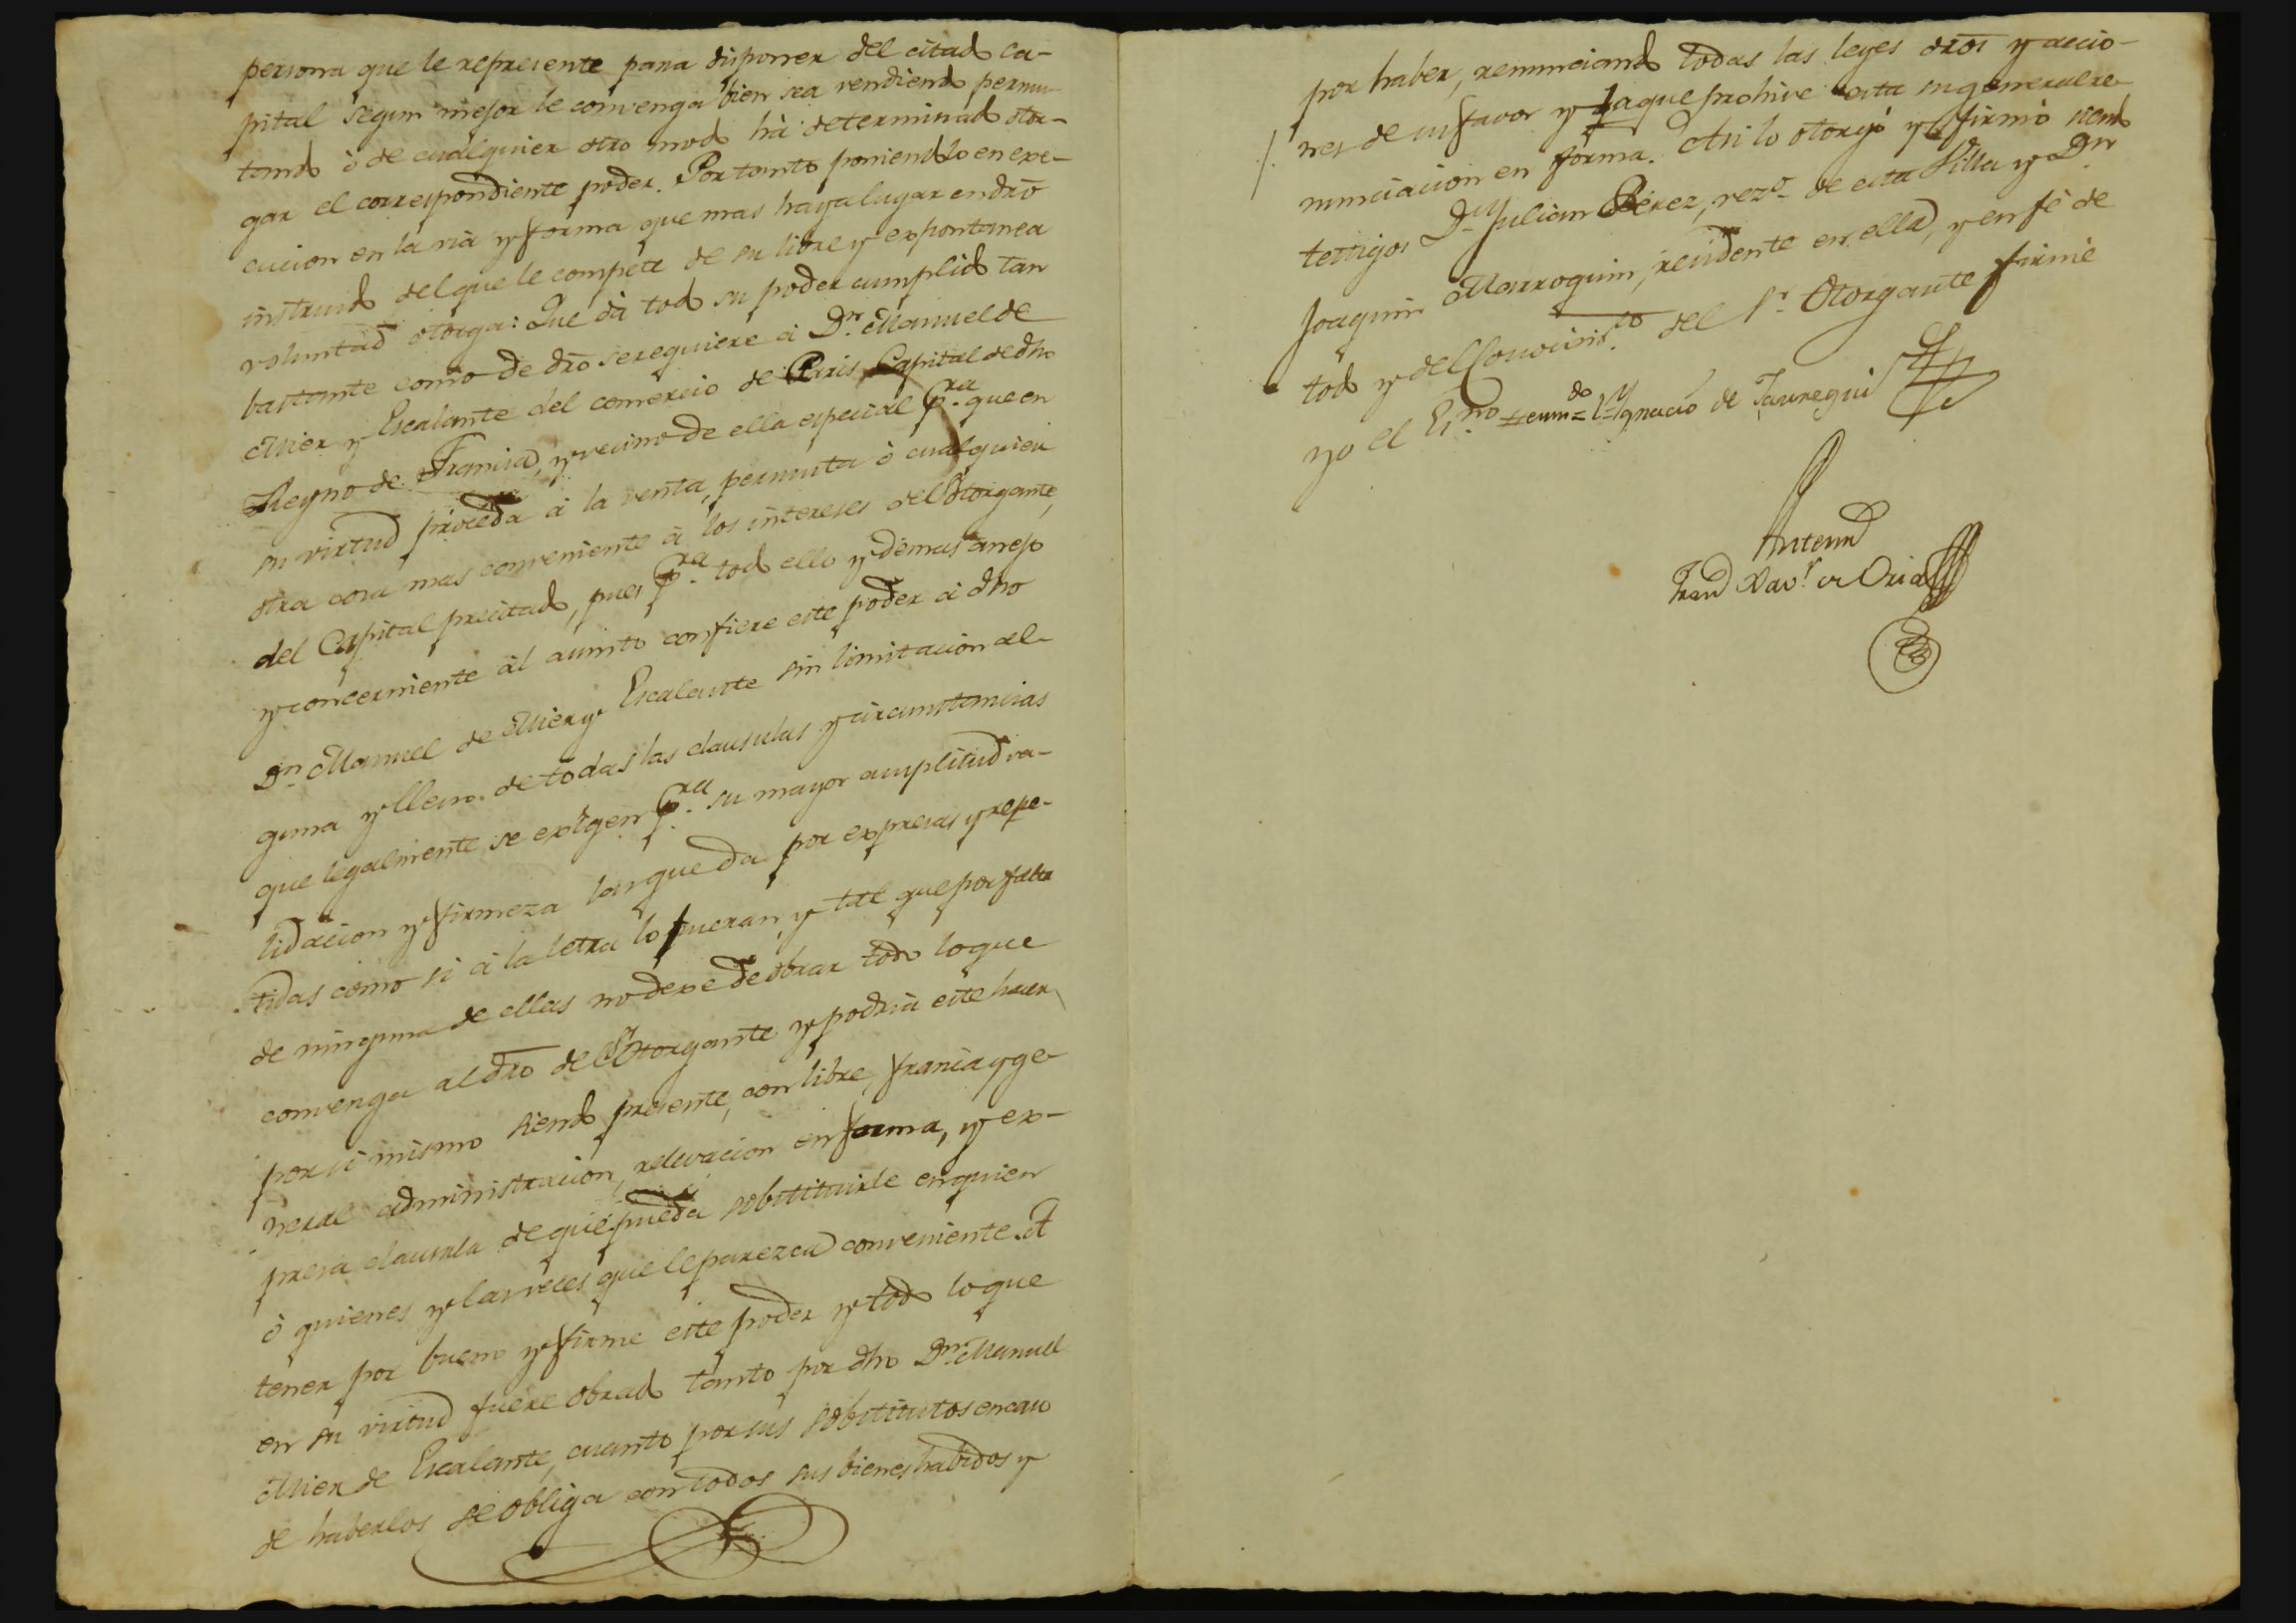 persona que le represente para disponer del citado ca-
pital segun mejor le convenga bien sea vendiendo permu-
tando ò de cualquier otro modo hà determinado otor-
gar el correspondiente poder. Por tanto poniendolo en exe-
cucion en la via y forma que mas haya lugar en dro
instruido del que le compete de su libre y expontanea
voluntad otorga: Que dà todo su poder cumplido tan
bastante como de dro se requiere à Dn. Manuel de
Mier y Escalante del comercio de Paris Capital de dho
Reyno de Francia, y vecino de ella especial pra. que en
su virtud proceda à la venta, permuta ò cualquier
otra cosa mas conveniente à los intereses del Otorgante,
del Capital precitado, pues pra. todo ello y demas anejo
y concerniente àl asunto confiere este poder à dho
Dn. Manuel de Mier y Escalante sin limitacion al-
guna y lleno de todas las clausulas y circunstancias
que legalmente se exigen pra. su mayor amplitud va-
lidacion y firmeza las que da por expresas y repe-
tidas como si à la letra lo fueran, y tal que por falta
de ninguna de ellas no dexe de obrar todo lo que
convenga al dro del Otorgante y podria este hacer
por si mismo siendo presente, con libre, franca y ge-
neral administracion, relevacion en forma, y ex-
presa clausula de que pueda sobstituirle en quien
ò quienes y las veces que le parezca conveniente. A
tener por bueno y firme este poder y todo lo que
en su virtud fuere obrado tanto por dho Dn. Manuel
Mier de Escalante, cuanto por sus sobstitutos en caso
de haberlos se obliga con todos sus bienes habidos y
por haber, renunciando todas las leyes dros y accio-
nes de su favor y la que prohive esta su general re-
nunciacion en forma. Asi lo otorgó y firmó siendo
testigos Dn. Julian Perez, vezo. de esta Villa y Dn
Joaquin Marroquin, residente en ella, y en fé de
todo y del conocimto. del Sr. Otorgante firmé
yo el Esno
Ygnacio de Jauregui
Antemi
Franco Xavr. de Oria